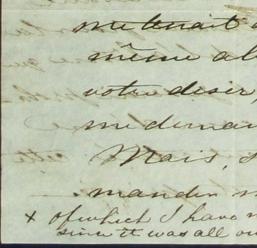 me tenait
même al
votre desir,
me deman
Mais, s
mander m
x of which I have n
since it was all ou